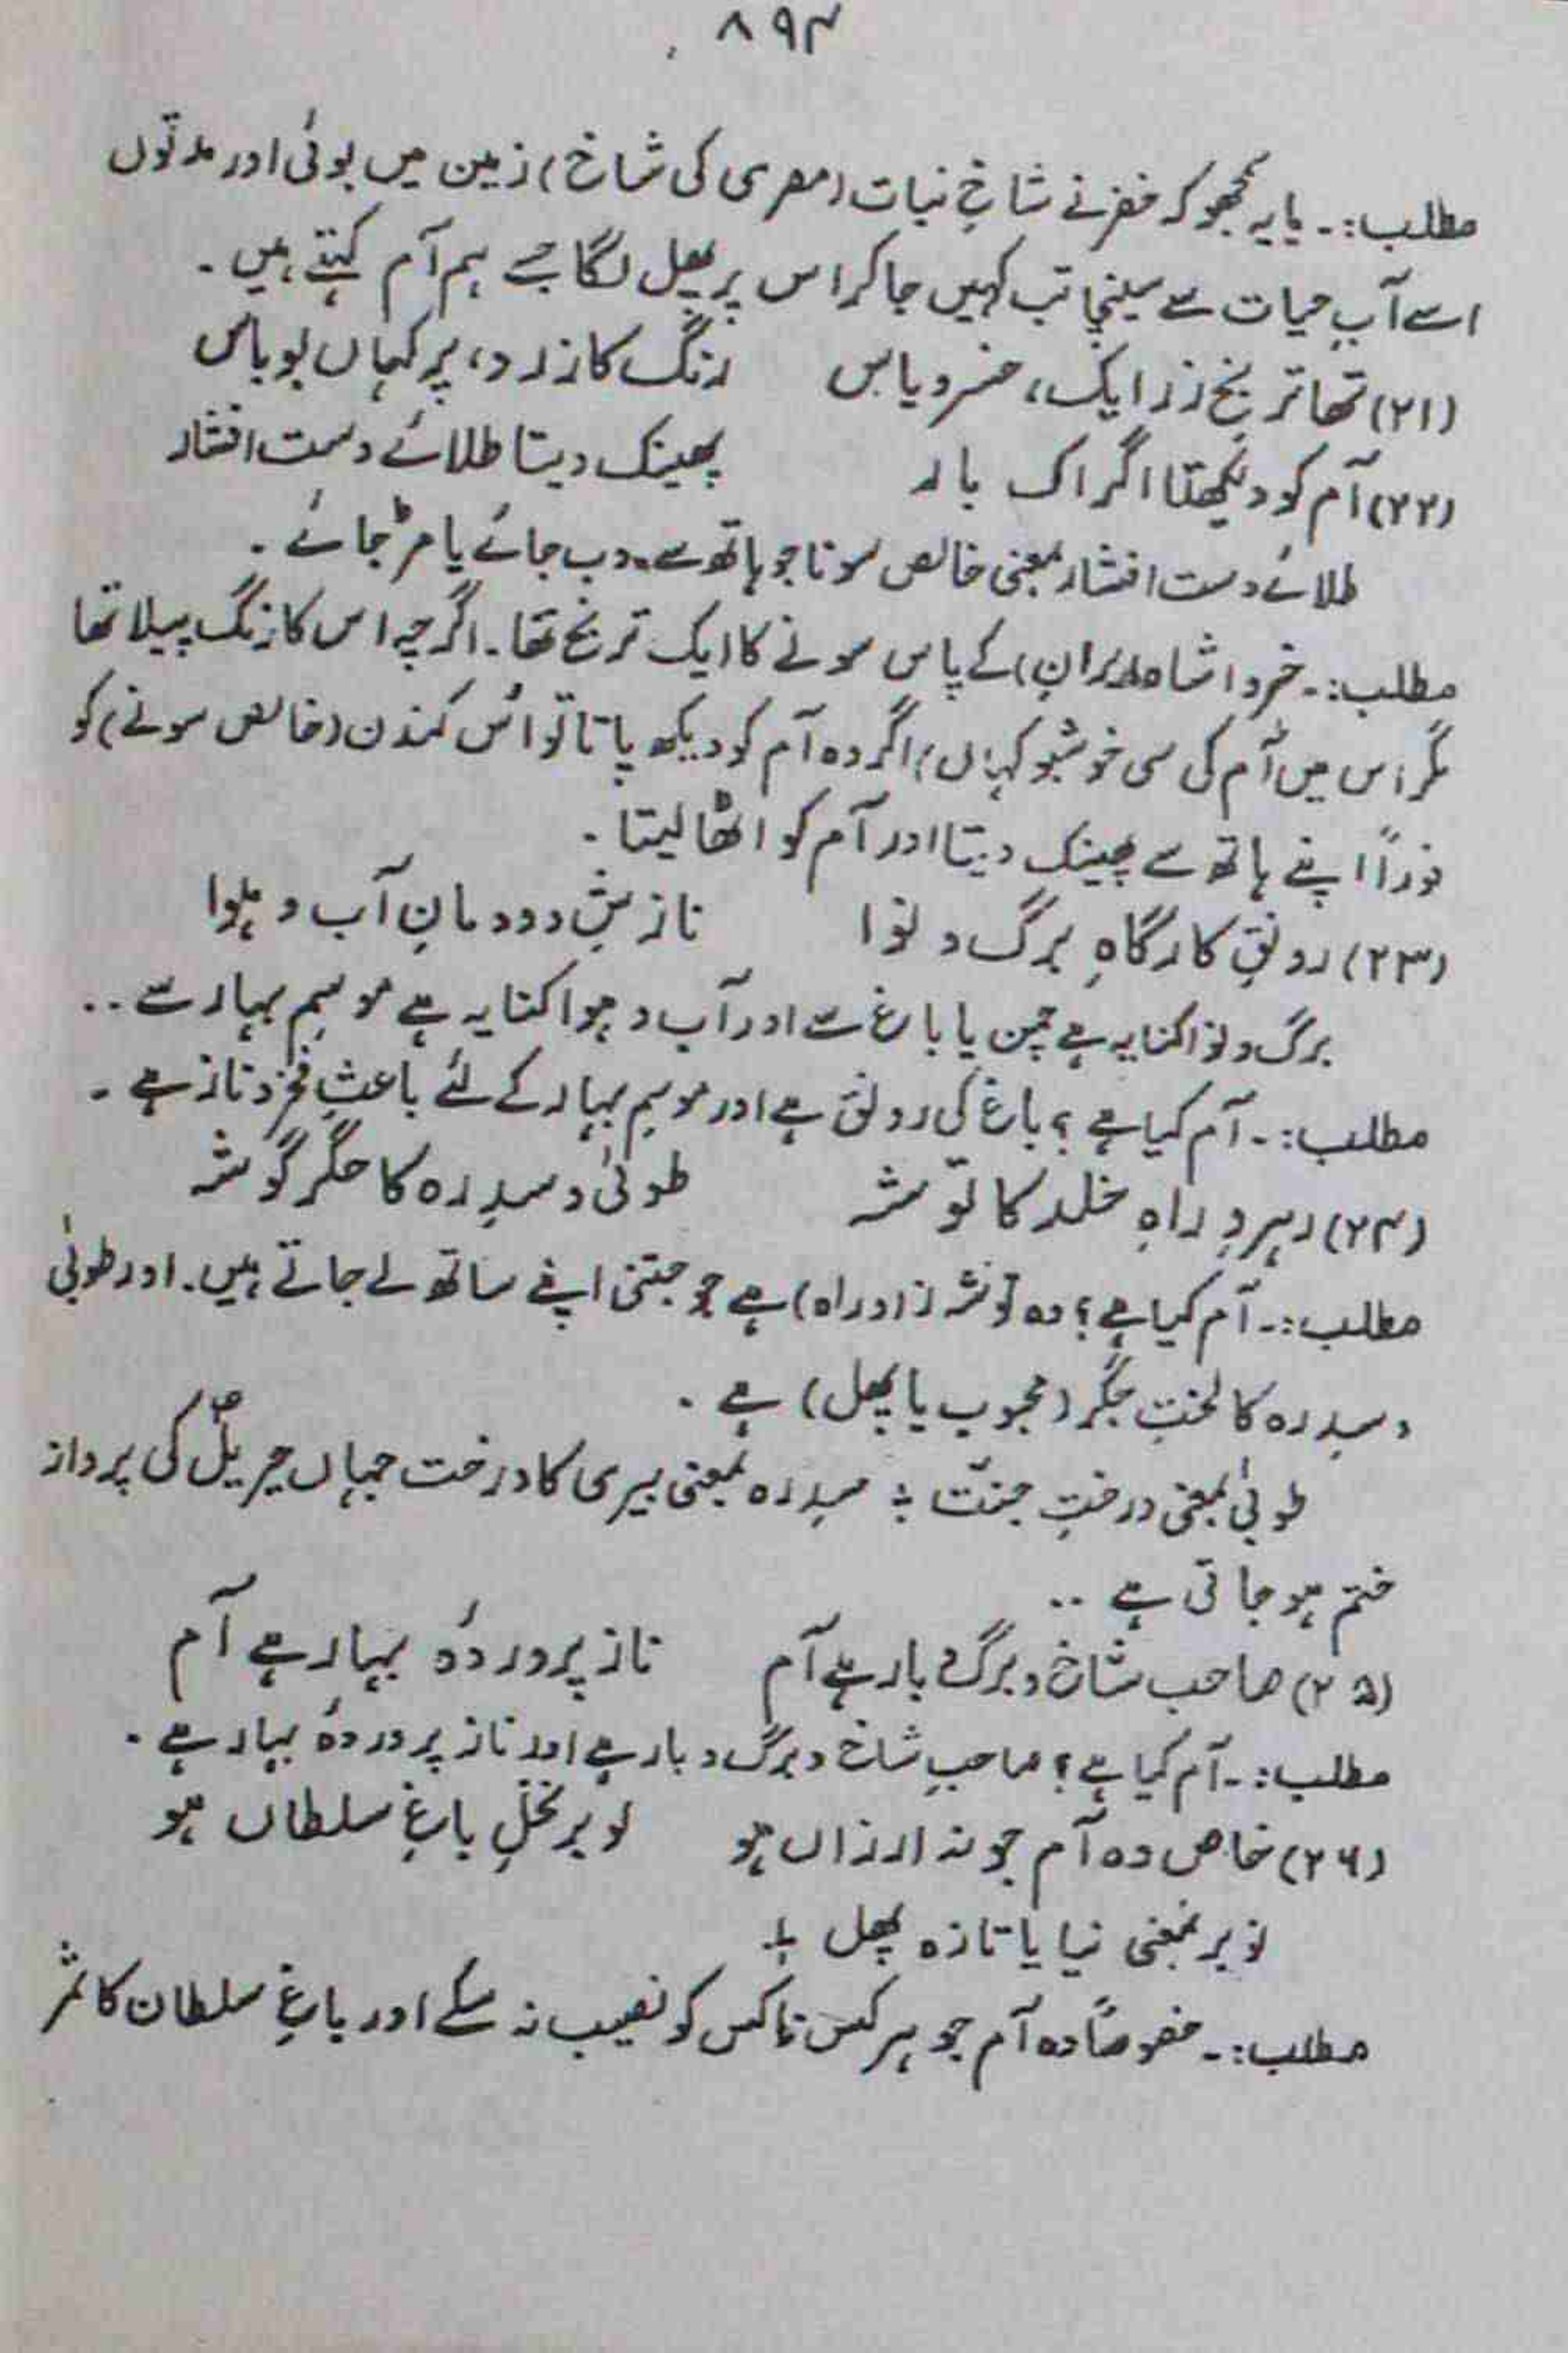 ۸۹۴
مطلب:۔ یا یہ سمجھو کہ خضر نے شاخِ نبات (مصری کی شاخ) زمین میں بوئی اور مدتوں
اسے آبِ حیات سے سینچا تب کہیں جا کر اس پر پھل لگا جسے ہم آم کہتے ہیں۔
(۲۱) تھا ترنجِ زر ایک، خسرو پاس رنگ کا زرد، پر کہاں بو باس
(۲۲) آم کو دیکھتا اگر اک بار پھینک دیتا طلائے دست افشار
طلائے دست افشار بمعنی خالص سونا جو ہاتھ سے دب جائے یا مڑ جائے۔
مطلب:۔ خسرو (شاہ ایران) کے پاس سونے کا ایک ترنج تھا۔ اگرچہ اس کا رنگ پیلا تھا
مگر اس میں آم کی سی خوشبو کہاں، اگر وہ آم کو دیکھ پاتا تو اس کندن (خالص سونے) کو
فوراً اپنے ہاتھ سے پھینک دیتا اور آم کو اٹھا لیتا۔
(۲۳) رونقِ کارگاہِ برگ و نوا نازشِ دودمانِ آب و ہوا
برگ و نوا کنایہ ہے چمن یا باغ سے اور آب و ہوا کنایہ ہے موسمِ بہار سے۔۔
مطلب:۔ آم کیا ہے؟ باغ کی رونق ہے اور موسمِ بہار کے لئے باعثِ فخر و ناز ہے۔
(۲۴) رہروِ راہِ خلد کا توشہ طوبیٰ و سدرہ کا جگر گوشہ
مطلب:۔ آم کیا ہے؟ وہ توشہ (زادِ راہ) ہے جو جنتی اپنے ساتھ لے جاتے ہیں۔ اور طوبیٰ
و سدرہ کا لختِ جگر (محبوب یا پھل) ہے۔
طوبیٰ بمعنی درختِ جنّت ؛ سدرہ بمعنی بیری کا درخت جہاں جبریلؑ کی پرواز
ختم ہو جاتی ہے ۔۔
(۲۵) صاحبِ شاخ و برگ و بار ہے آم ناز پروردۂ بہار ہے آم
مطلب:۔ آم کیا ہے؟ صاحبِ شاخ و برگ و بار ہے اور ناز پروردۂ بہار ہے۔
(۲۶) خاص وہ آم جو نہ ارزاں ہو نوبرِ نخلِ باغِ سلطاں ہو
نوبر بمعنی نیا یا تازہ پھل
مطلب:۔ خصوصاً وہ آم جو ہر کس ناکس کو نصیب نہ ہو سکے اور باغِ سلطان کا ثمر